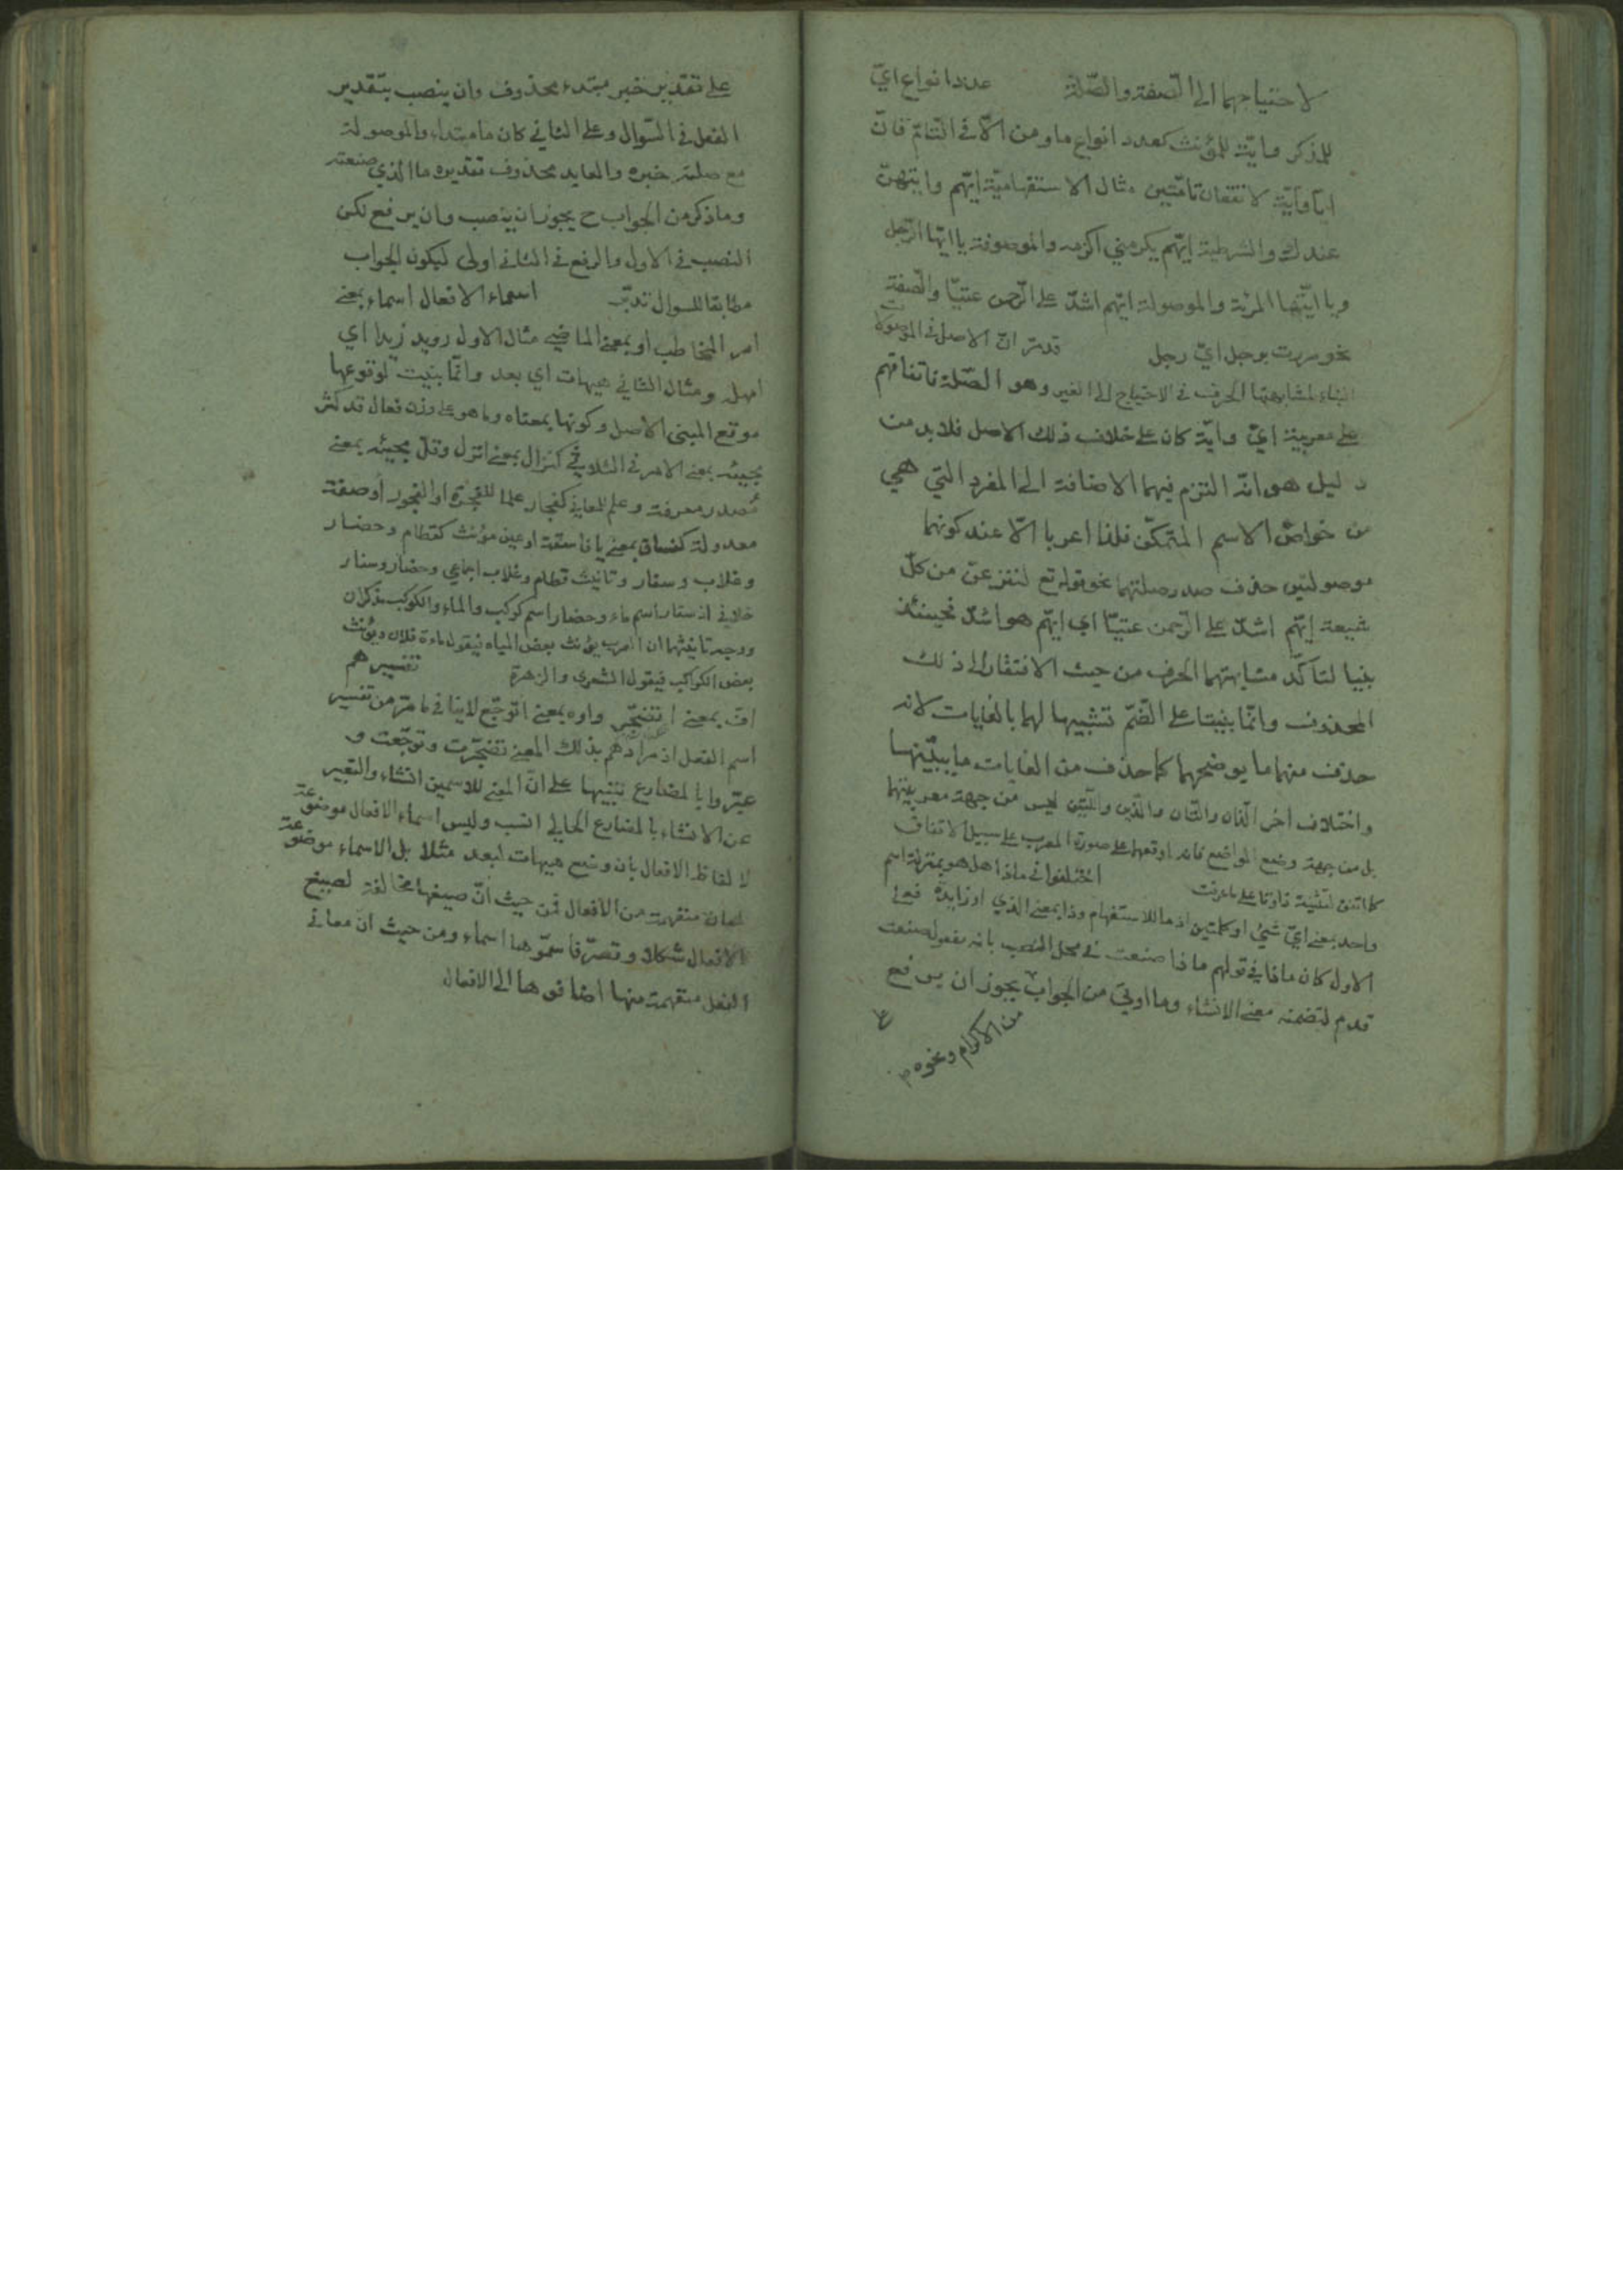 لاحتياجهما الى الصفة والصلة عدد انواع ايّ
للمذكر وايّة للمؤنث كعدد انواع ما ومن الّا في التامّ فانّ
ايّا وايّة لا تقعان تامّتين مثال الاستفهاميّة ايّهم وايّتهنّ
عندك والشرطية ايّهم يكرمني اكرمه والموصوفة يا ايّها الرّجل
ويا ايّتها المرئة والموصولة ايّهم اشدّ على الرّحمن عتيّا والصّفة
نحو مررت برجل ايّ رجل قد مرّ انّ الاصل في الموصولات
البناء لمشابهتها الحرف في الاحتياج الى الغير وهو الصّلة فاتفاقهم
على معربية ايّ وايّة كان على خلاف ذلك الاصل فلا بد من
دليل هو انّه التزم فيهما الاضافة الى المفرد التي هي
من خواصّ الاسم المتمكّن فلذا اعربا الّا عند كونهما
موصولتين حذف صدر صلتهما نحو قوله تع لننزعنّ من كلّ
شيعة ايّهم اشدّ على الرّحمن عتيّا اي ايّهم هو اشدّ فحينئذ
بنيا لتاكّد مشابهتهما الحرف من حيث الافتقار الى ذلك
المحذوف وانّما بنيتا على الضّمّ تشبيها لهما بالغايات لانه
حذف منهما ما يوضحهما كما حذف من الغايات ما يبيّنها
واختلاف اخر الّذان والّتان والّذين والّتين ليس من جهة معربيتهما
بل من جهة وضع الواضع فانه اوقعهما على صورة المعرب على سبيل الاتفاق
كما اتفق لتثنية ذا وتا على ما عرفت اختلفوا في ماذا هل هو بمنزلة اسم
واحد بمعنى ايّ شيئ او كلمتين اذ ما للاستفهام وذا بمعنى الذي او زايدة فعلى
الاول كان ماذا في قولهم ماذا صنعت في محل النصب بانه مفعول صنعت
قدم لتضمنه معنى الانشاء وما اوتي من الجواب يجوز ان يرفع
من الاكرام ونحوه
على تقدير خبر مبتدء محذوف وان ينصب بتقدير
الفعل في السّوال وعلى الثاني كان ما مبتداء والموصولة
مع صلته خبره والعايد محذوف تقديره ما الذي صنعته
وما ذكر من الجواب ح يجوز ان ينصب وان يرفع لكن
النصب في الاول والرفع في الثاني اولى ليكون الجواب
مطابقا للسوال تدبّر اسماء الافعال اسماء بمعنى
امر المخاطب او بمعنى الماضي مثال الاول رويد زيدا اي
امهل ومثال الثاني هيهات اي بعد وانّما بنيت لوقوعها
موقع المبنى الاصل وكونها بمعناه وما هو على وزن فعال قد كثر
مجيئه بمعنى الامر في الثلاثي كنزال بمعنى انزل وقلّ مجيئه بمعنى
مصدر معرفة وعلم للمعاني كفجار علما للفجرة او الفجور او صفة
معدولة كفساق بمعنى يا فاسقة او عين مؤنث كقطام وحضار
وغلاب وسفار وتانيث قطام وغلاب اجماعي وحضار وسفار
خلافي اذ سفار اسم ماء وحضار اسم كوكب والماء والكوكب مذكران
ووجه تانيثهما ان العرب يؤنث بعض المياه فيقول ماءة فلان ويؤنث
بعض الكواكب فيقول الشعرى والزهرة تفسيرهم
افّ بمعنى اتضجّر واوه بمعنى اتوجّع لا ينافي ما مرّ من تفسير
اسم الفعل اذ مرادهم بذلك المعنى تضجّرت وتوجّعت و
عبّروا بالمضارع تنبيها على انّ المعنى للاسمين انشاء والتعبير
عن الانشاء بالمضارع الحالي انسب وليس اسماء الافعال موضوعة
لالفاظ الافعال بان وضع هيهات لبعد مثلا بل الاسماء موضوعة
لمعان متفهمة من الافعال فمن حيث انّ صيغها مخالفة لصيغ
الافعال شكلا وتصرّفا سمّوها اسماء ومن حيث ان معاني
الفعل متفهمة منها اضافوها الى الافعال